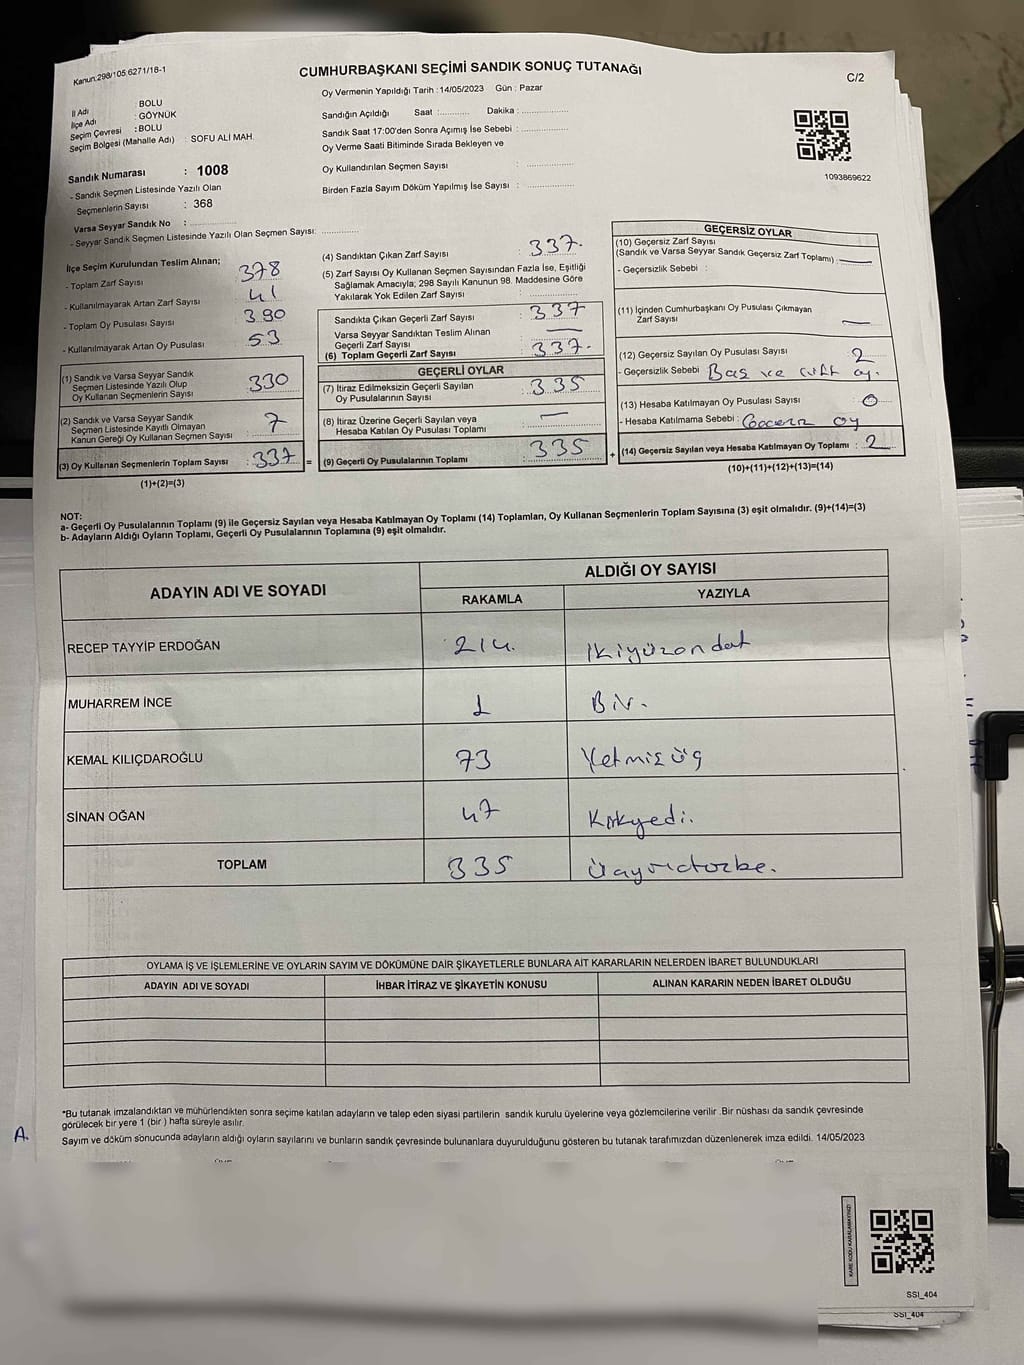 Kanun:298/105 6271/18-1
CUMHURBAŞKANI SEÇİMİ SANDIK SONUÇ TUTANAĞI
C/2
İl Adı : BOLU
İlçe Adı : GÖYNÜK
Seçim Çevresi : BOLU
Seçim Bölgesi (Mahalle Adı) : SOFU ALİ MAH.
Sandık Numarası : 1008
- Sandık Seçmen Listesinde Yazılı Olan
Seçmenlerin Sayısı : 368
Varsa Seyyar Sandık No :
- Seyyar Sandık Seçmen Listesinde Yazılı Olan Seçmen Sayısı:
Oy Vermenin Yapıldığı Tarih :14/05/2023 Gün : Pazar
Sandığın Açıldığı Saat : Dakika :
Sandık Saat 17:00'den Sonra Açımış İse Sebebi :
Oy Verme Saati Bitiminde Sırada Bekleyen ve
Oy Kullandırılan Seçmen Sayısı :
Birden Fazla Sayım Döküm Yapılmış İse Sayısı :
1093869622
İlçe Seçim Kurulundan Teslim Alınan;
- Toplam Zarf Sayısı 378
- Kullanılmayarak Artan Zarf Sayısı 41
- Toplam Oy Pusulası Sayısı 390
- Kullanılmayarak Artan Oy Pusulası 53
(1) Sandık ve Varsa Seyyar Sandık
Seçmen Listesinde Yazılı Olup
Oy Kullanan Seçmenlerin Sayısı : 330
(2) Sandık ve Varsa Seyyar Sandık
Seçmen Listesinde Kayıtlı Olmayan
Kanun Gereği Oy Kullanan Seçmen Sayısı : 7
(3) Oy Kullanan Seçmenlerin Toplam Sayısı : 337 =
(1)+(2)=(3)
(4) Sandıktan Çıkan Zarf Sayısı : 337.
(5) Zarf Sayısı Oy Kullanan Seçmen Sayısından Fazla İse, Eşitliği
Sağlamak Amacıyla; 298 Sayılı Kanunun 98. Maddesine Göre
Yakılarak Yok Edilen Zarf Sayısı :
Sandıkta Çıkan Geçerli Zarf Sayısı : 337
Varsa Seyyar Sandıktan Teslim Alınan
Geçerli Zarf Sayısı : —
(6) Toplam Geçerli Zarf Sayısı : 337.
GEÇERLİ OYLAR
(7) İtiraz Edilmeksizin Geçerli Sayılan
Oy Pusulalarının Sayısı : 335
(8) İtiraz Üzerine Geçerli Sayılan veya
Hesaba Katılan Oy Pusulası Toplamı : —
(9) Geçerli Oy Pusulalarının Toplamı : 335 +
GEÇERSİZ OYLAR
(10) Geçersiz Zarf Sayısı
(Sandık ve Varsa Seyyar Sandık Geçersiz Zarf Toplamı) : —
- Geçersizlik Sebebi :
(11) İçinden Cumhurbaşkanı Oy Pusulası Çıkmayan
Zarf Sayısı : —
(12) Geçersiz Sayılan Oy Pusulası Sayısı : 2
- Geçersizlik Sebebi : Boş ve çift oy.
(13) Hesaba Katılmayan Oy Pusulası Sayısı : 0
- Hesaba Katılmama Sebebi : oy
(14) Geçersiz Sayılan veya Hesaba Katılmayan Oy Toplamı : 2
(10)+(11)+(12)+(13)=(14)
NOT:
a- Geçerli Oy Pusulalarının Toplamı (9) ile Geçersiz Sayılan veya Hesaba Katılmayan Oy Toplamı (14) Toplamları, Oy Kullanan Seçmenlerin Toplam Sayısına (3) eşit olmalıdır. (9)+(14)=(3)
b- Adayların Aldığı Oyların Toplamı, Geçerli Oy Pusulalarının Toplamına (9) eşit olmalıdır.
ADAYIN ADI VE SOYADI
ALDIĞI OY SAYISI
RAKAMLA YAZIYLA
RECEP TAYYİP ERDOĞAN 214. ikiyüzondört
MUHARREM İNCE 1 Bir.
KEMAL KILIÇDAROĞLU 73 Yetmişüç
SİNAN OĞAN 47 Kırkyedi.
TOPLAM 335
OYLAMA İŞ VE İŞLEMLERİNE VE OYLARIN SAYIM VE DÖKÜMÜNE DAİR ŞİKAYETLERLE BUNLARA AİT KARARLARIN NELERDEN İBARET BULUNDUKLARI
ADAYIN ADI VE SOYADI İHBAR İTİRAZ VE ŞİKAYETİN KONUSU ALINAN KARARIN NEDEN İBARET OLDUĞU
*Bu tutanak imzalandıktan ve mühürlendikten sonra seçime katılan adayların ve talep eden siyasi partilerin sandık kurulu üyelerine veya gözlemcilerine verilir .Bir nüshası da sandık çevresinde
görülecek bir yere 1 (bir ) hafta süreyle asılır.
A.
Sayım ve döküm sonucunda adayların aldığı oyların sayılarını ve bunların sandık çevresinde bulunanlara duyurulduğunu gösteren bu tutanak tarafımızdan düzenlenerek imza edildi. 14/05/2023
KARE KODU KARALAMAYINIZ!
SSI_404
SSI_404